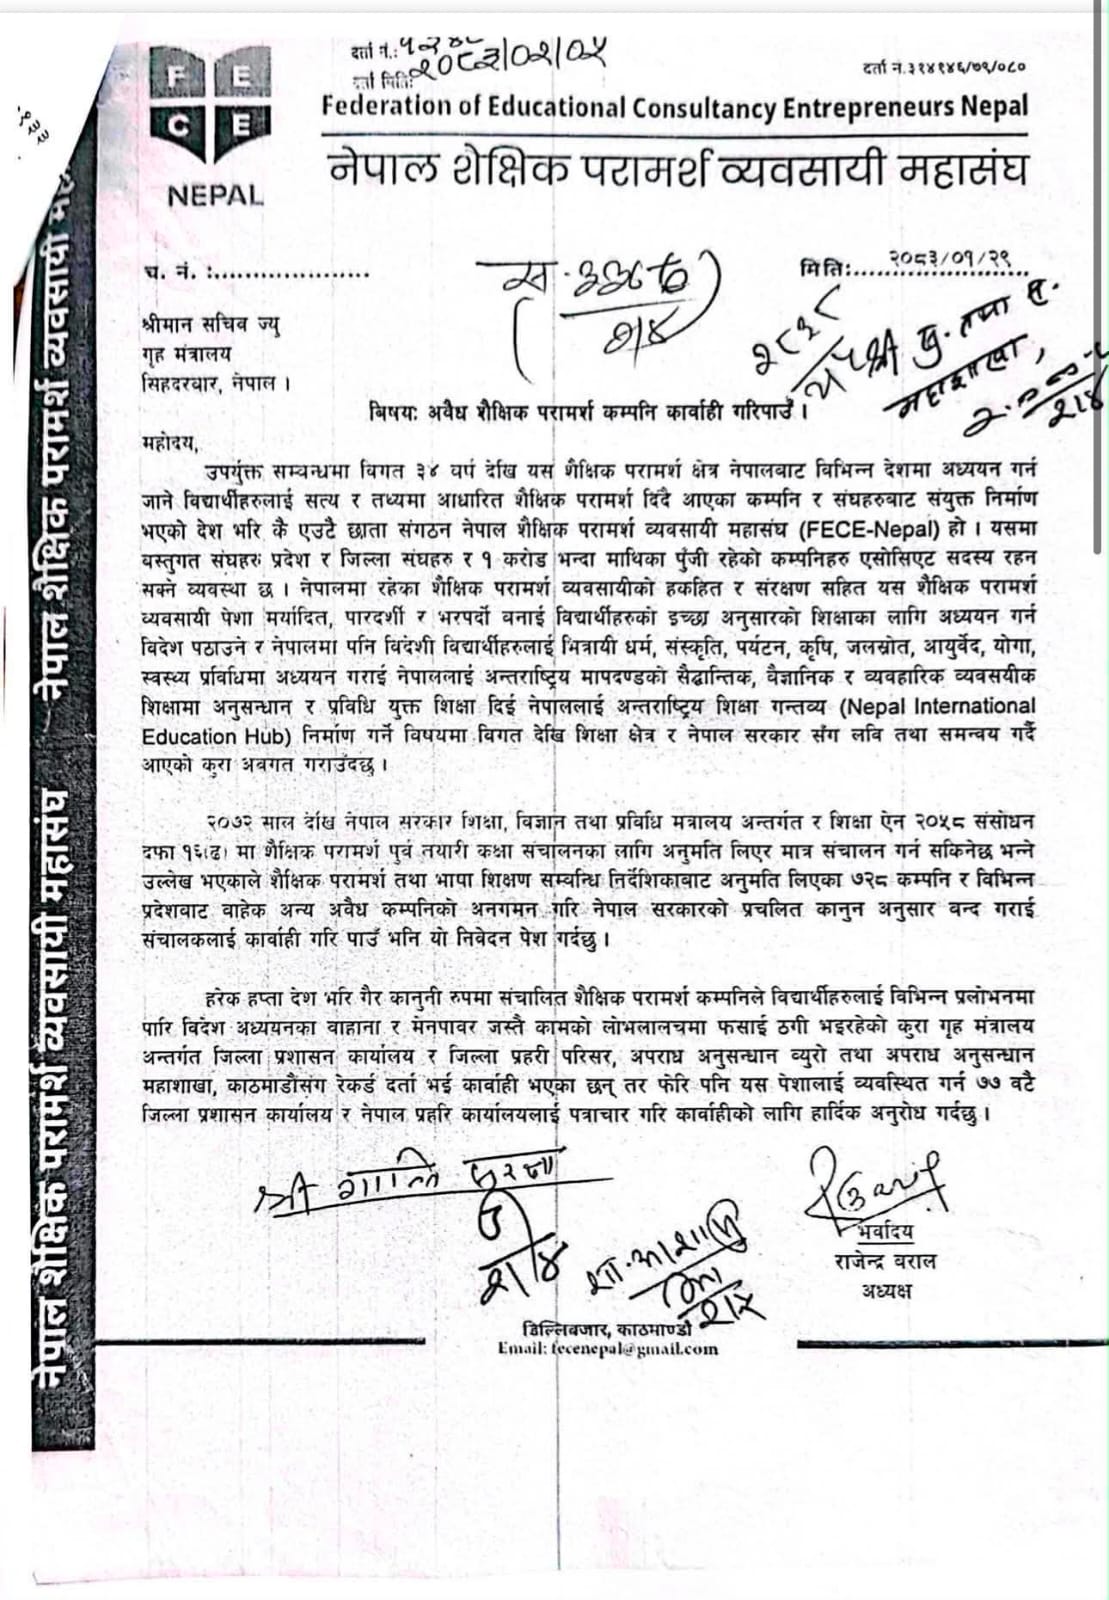 दर्ता नं.:
दर्ता मिति: २०८३/०२/०५
दर्ता न.३१४१४६/७९/०८०
F E
C E
NEPAL
Federation of Educational Consultancy Entrepreneurs Nepal
नेपाल शैक्षिक परामर्श व्यवसायी महासंघ
च. नं. :.....................
मिति:.... २०८३/०१/२९
श्रीमान सचिव ज्यु
गृह मंत्रालय
सिहदरवार, नेपाल ।
बिषय: अवैध शैक्षिक परामर्श कम्पनि कार्वाही गरिपाउँ ।
महोदय,
उपर्युक्त सम्बन्धमा विगत ३४ वर्ष देखि यस शैक्षिक परामर्श क्षेत्र नेपालबाट विभिन्न देशमा अध्ययन गर्न
जाने विद्यार्थीहरुलाई सत्य र तथ्यमा आधारित शैक्षिक परामर्श दिदै आएका कम्पनि र संघहरुबाट संयुक्त निर्माण
भएको देश भरि कै एउटै छाता संगठन नेपाल शैक्षिक परामर्श व्यवसायी महासंघ (FECE-Nepal) हो । यसमा
वस्तुगत संघहरु प्रदेश र जिल्ला संघहरु र १ करोड भन्दा माथिका पुँजी रहेको कम्पनिहरु एसोसिएट सदस्य रहन
सक्ने व्यवस्था छ । नेपालमा रहेका शैक्षिक परामर्श व्यवसायीको हकहित र संरक्षण सहित यस शैक्षिक परामर्श
व्यवसायी पेशा मर्यादित, पारदर्शी र भरपर्दो बनाई विद्यार्थीहरुको इच्छा अनुसारको शिक्षाका लागि अध्ययन गर्न
विदेश पठाउने र नेपालमा पनि विदेशी विद्यार्थीहरुलाई भित्रायी धर्म, संस्कृति, पर्यटन, कृषि, जलस्रोत, आयुर्वेद, योगा,
स्वस्थ्य प्रविधिमा अध्ययन गराई नेपाललाई अन्तराष्ट्रिय मापदण्डको सैद्धान्तिक, वैज्ञानिक र व्यवहारिक व्यवसयीक
शिक्षामा अनुसन्धान र प्रविधि युक्त शिक्षा दिई नेपाललाई अन्तराष्ट्रिय शिक्षा गन्तव्य (Nepal International
Education Hub) निर्माण गर्ने विषयमा विगत देखि शिक्षा क्षेत्र र नेपाल सरकार सँग लवि तथा समन्वय गर्दै
आएको कुरा अवगत गराउँदछु ।
२०७२ साल देखि नेपाल सरकार शिक्षा, विज्ञान तथा प्रविधि मंत्रालय अन्तर्गत र शिक्षा ऐन २०५८ संसोधन
दफा १६(ढ) मा शैक्षिक परामर्श पुर्व तयारी कक्षा संचालनका लागि अनुमति लिएर मात्र संचालन गर्न सकिनेछ भन्ने
उल्लेख भएकाले शैक्षिक परामर्श तथा भाषा शिक्षण सम्बन्धि निर्देशिकाबाट अनुमति लिएका ७२८ कम्पनि र विभिन्न
प्रदेशवाट वाहेक अन्य अवैध कम्पनिको अनगमन गरि नेपाल सरकारको प्रचलित कानुन अनुसार बन्द गराई
संचालकलाई कार्वाही गरि पाउँ भनि यो निवेदन पेश गर्दछु ।
हरेक हप्ता देश भरि गैर कानुनी रुपमा संचालित शैक्षिक परामर्श कम्पनिले विद्यार्थीहरुलाई विभिन्न प्रलोभनमा
पारि विदेश अध्ययनका वाहाना र मेनपावर जस्तै कामको लोभलालचमा फसाई ठगी भइरहेको कुरा गृह मंत्रालय
अन्तर्गत जिल्ला प्रशासन कार्यालय र जिल्ला प्रहरी परिसर, अपराध अनुसन्धान व्युरो तथा अपराध अनुसन्धान
महाशाखा, काठमाडौसंग रेकर्ड दर्ता भई कार्वाही भएका छन् तर फेरि पनि यस पेशालाई व्यवस्थित गर्न ७७ वटै
जिल्ला प्रशासन कार्यालय र नेपाल प्रहरि कार्यालयलाई पत्राचार गरि कार्वाहीको लागि हार्दिक अनुरोध गर्दछु ।
श्री शान्ति सुरक्षा
भवदिय
राजेन्द्र बराल
अध्यक्ष
डिल्लिबजार, काठमाण्डौ
Email: fecenepal@gmail.com
नेपाल शैक्षिक परामर्श व्यवसायी महासंघ
नेपाल शैक्षिक परामर्श व्यवसायी